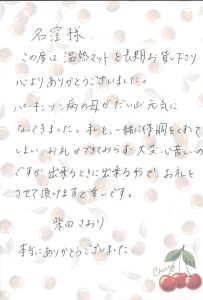 名窪様
この度は温熱マットを長期お貸し下さり
心よりありがとうございました。
パーキンソン病の母がだいぶ元気に
なってきました。私も、一緒に体調をくずして
しまい、お礼ができておらず、大変心苦しいの
ですが、出来るときに出来る形で、お礼を
させて頂けますと幸いです。
柴田さおり
本当にありがとうございました。
Cherry